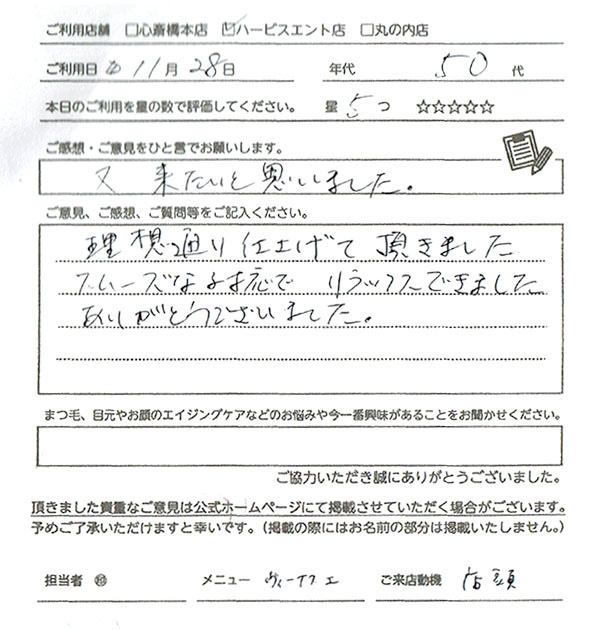 ご利用店舗 □心斎橋本店 ☑ハービスエント店 □丸の内店
ご利用日 11月28日 年代 50代
本日のご利用を星の数で評価してください。 星5つ ☆☆☆☆☆
ご感想・ご意見をひと言でお願いします。
又来たいと思いました。
ご意見、ご感想、ご質問等をご記入ください。
理想通り仕上げて頂きました
スムーズな対応でリラックスできました
ありがとうございました。
まつ毛、目元やお顔のエイジングケアなどのお悩みや今一番興味があることをお聞かせください。
ご協力いただき誠にありがとうございました。
頂きました貴重なご意見は公式ホームページにて掲載させていただく場合がございます。
予めご了承いただけますと幸いです。（掲載の際にはお名前の部分は掲載いたしません。）
担当者 メニュー ご来店動機 店頭